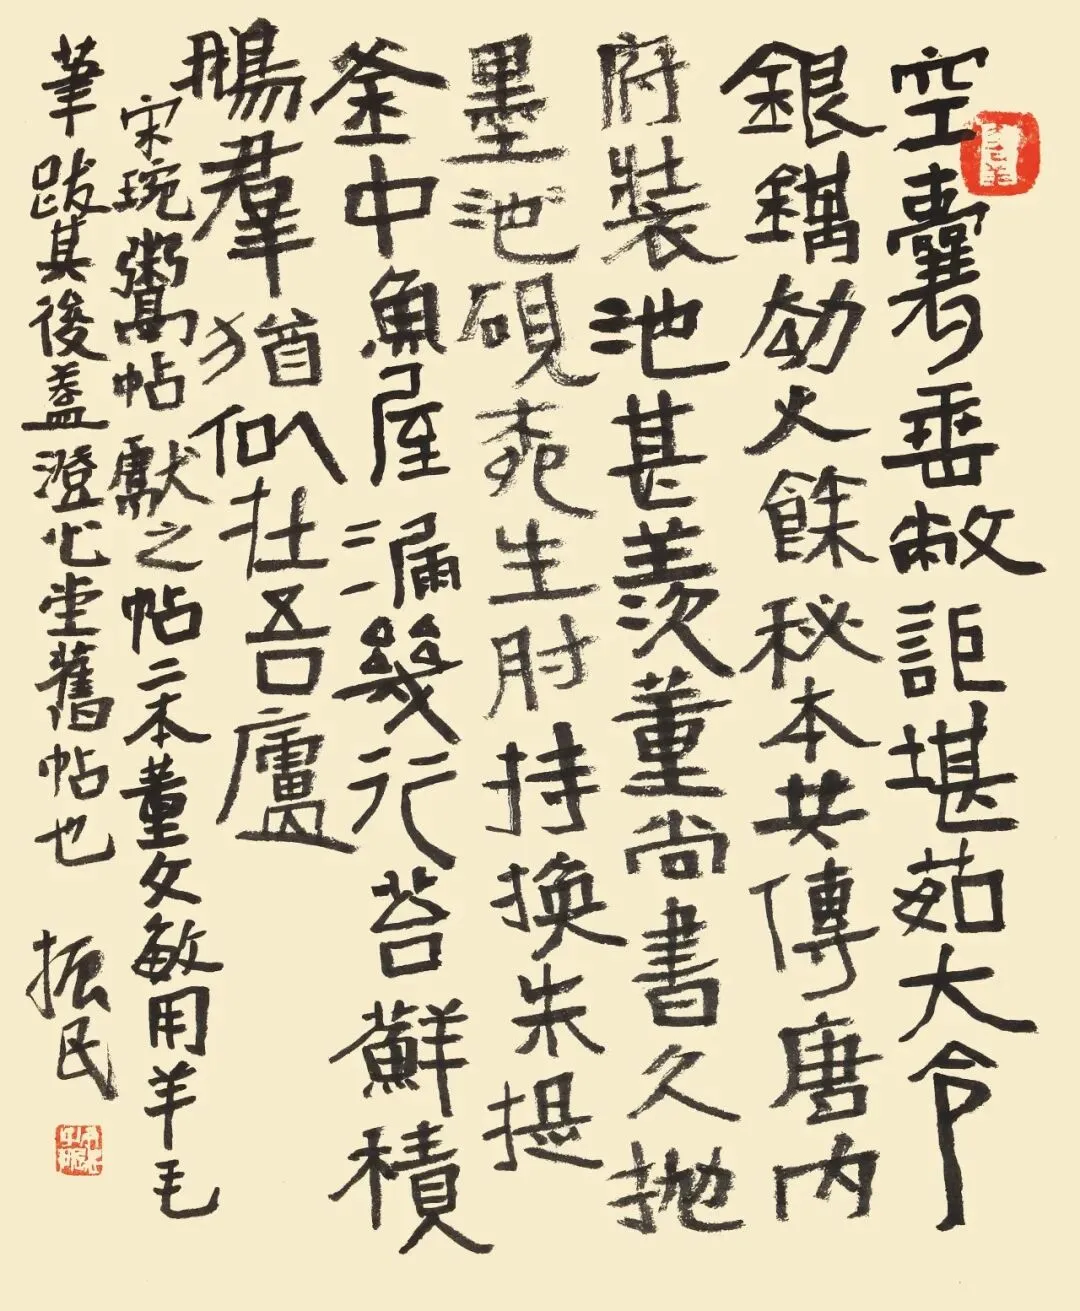 空囊垂敝詎堪茹大令
銀鈎劫火餘秘本共傳唐內
府裝池甚羨董尚書久拋
墨池硯生肘持換朱提
釜中魚屋漏幾行苔蘚積
鵝羣猶似在吾廬
宋琬鬻帖獻之帖二本董文敏用羊毛
筆跋其後蓋澄心堂舊帖也
振民